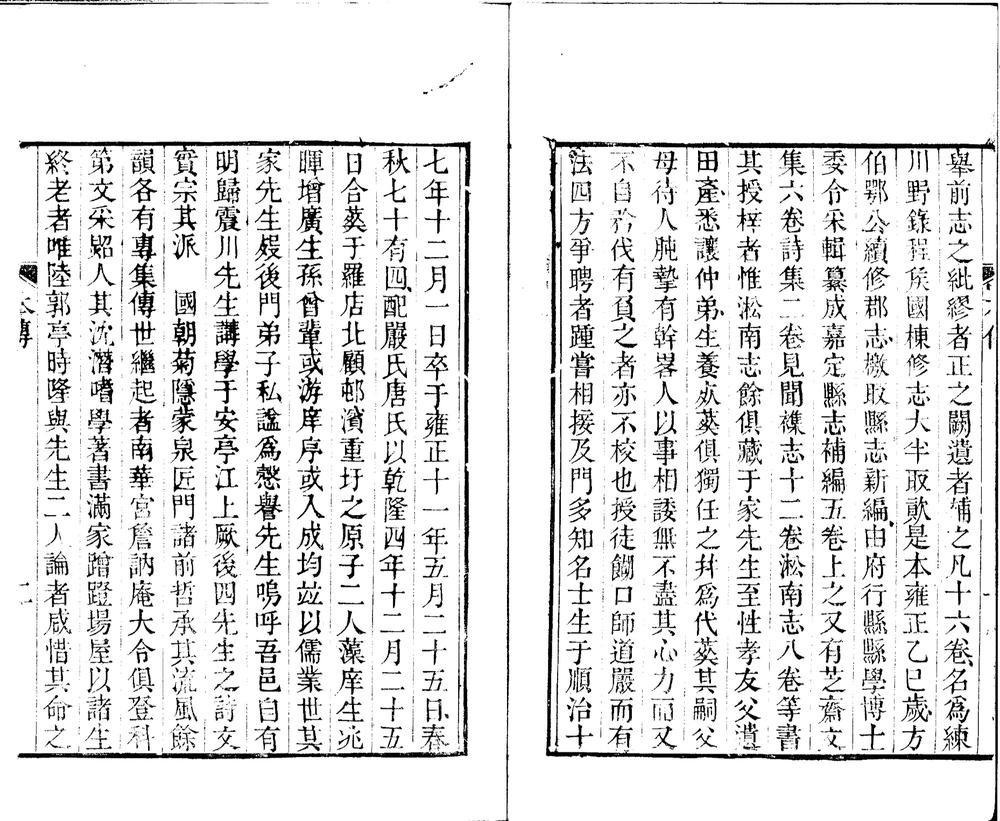 舉前志之紕繆者正之闕遺者補之凡十六卷名爲練
川野錄程侯國棟修志大半取㱃是本雍正乙巳歲方
伯鄂公續修郡志檄取縣志新編由府行縣縣學博士
委令采輯纂成嘉定縣志補編五卷上之又有芝齋文
集六卷詩集二卷見聞襍志十二卷淞南志八卷等書
其授梓者惟淞南志餘俱藏于家先生至性孝友父遺
田產悉讓仲弟生養殁葬俱獨任之幷爲代葬其嗣父
母待人肫摯有幹畧人以事相諉無不盡其心力而又
不自矜伐有負之者亦不校也授徒餬口師道嚴而有
法四方爭聘者踵嘗相接及門多知名士生于順治十
七年十二月一日卒于雍正十一年五月二十五日春
秋七十有四配嚴氏唐氏以乾隆四年十二月二十五
日合葬于羅店北顧邨濱重圩之原子二人藻庠生兆
暉增廣生孫曾輩或游庠序或入成均竝以儒業世其
家先生殁後門弟子私謚爲慤譽先生嗚呼吾邑自有
明歸震川先生講學于安亭江上厥後四先生之詩文
實宗其派 國朝菊隱蒙泉匠門諸前哲承其流風餘
韻各有專集傳世繼起者南華宮詹訥庵大令俱登科
第文采照人其沈潛嗜學著書滿家蹭蹬場屋以諸生
終老者唯陸郭亭時隆與先生二人論者咸惜其命之
本傳
二